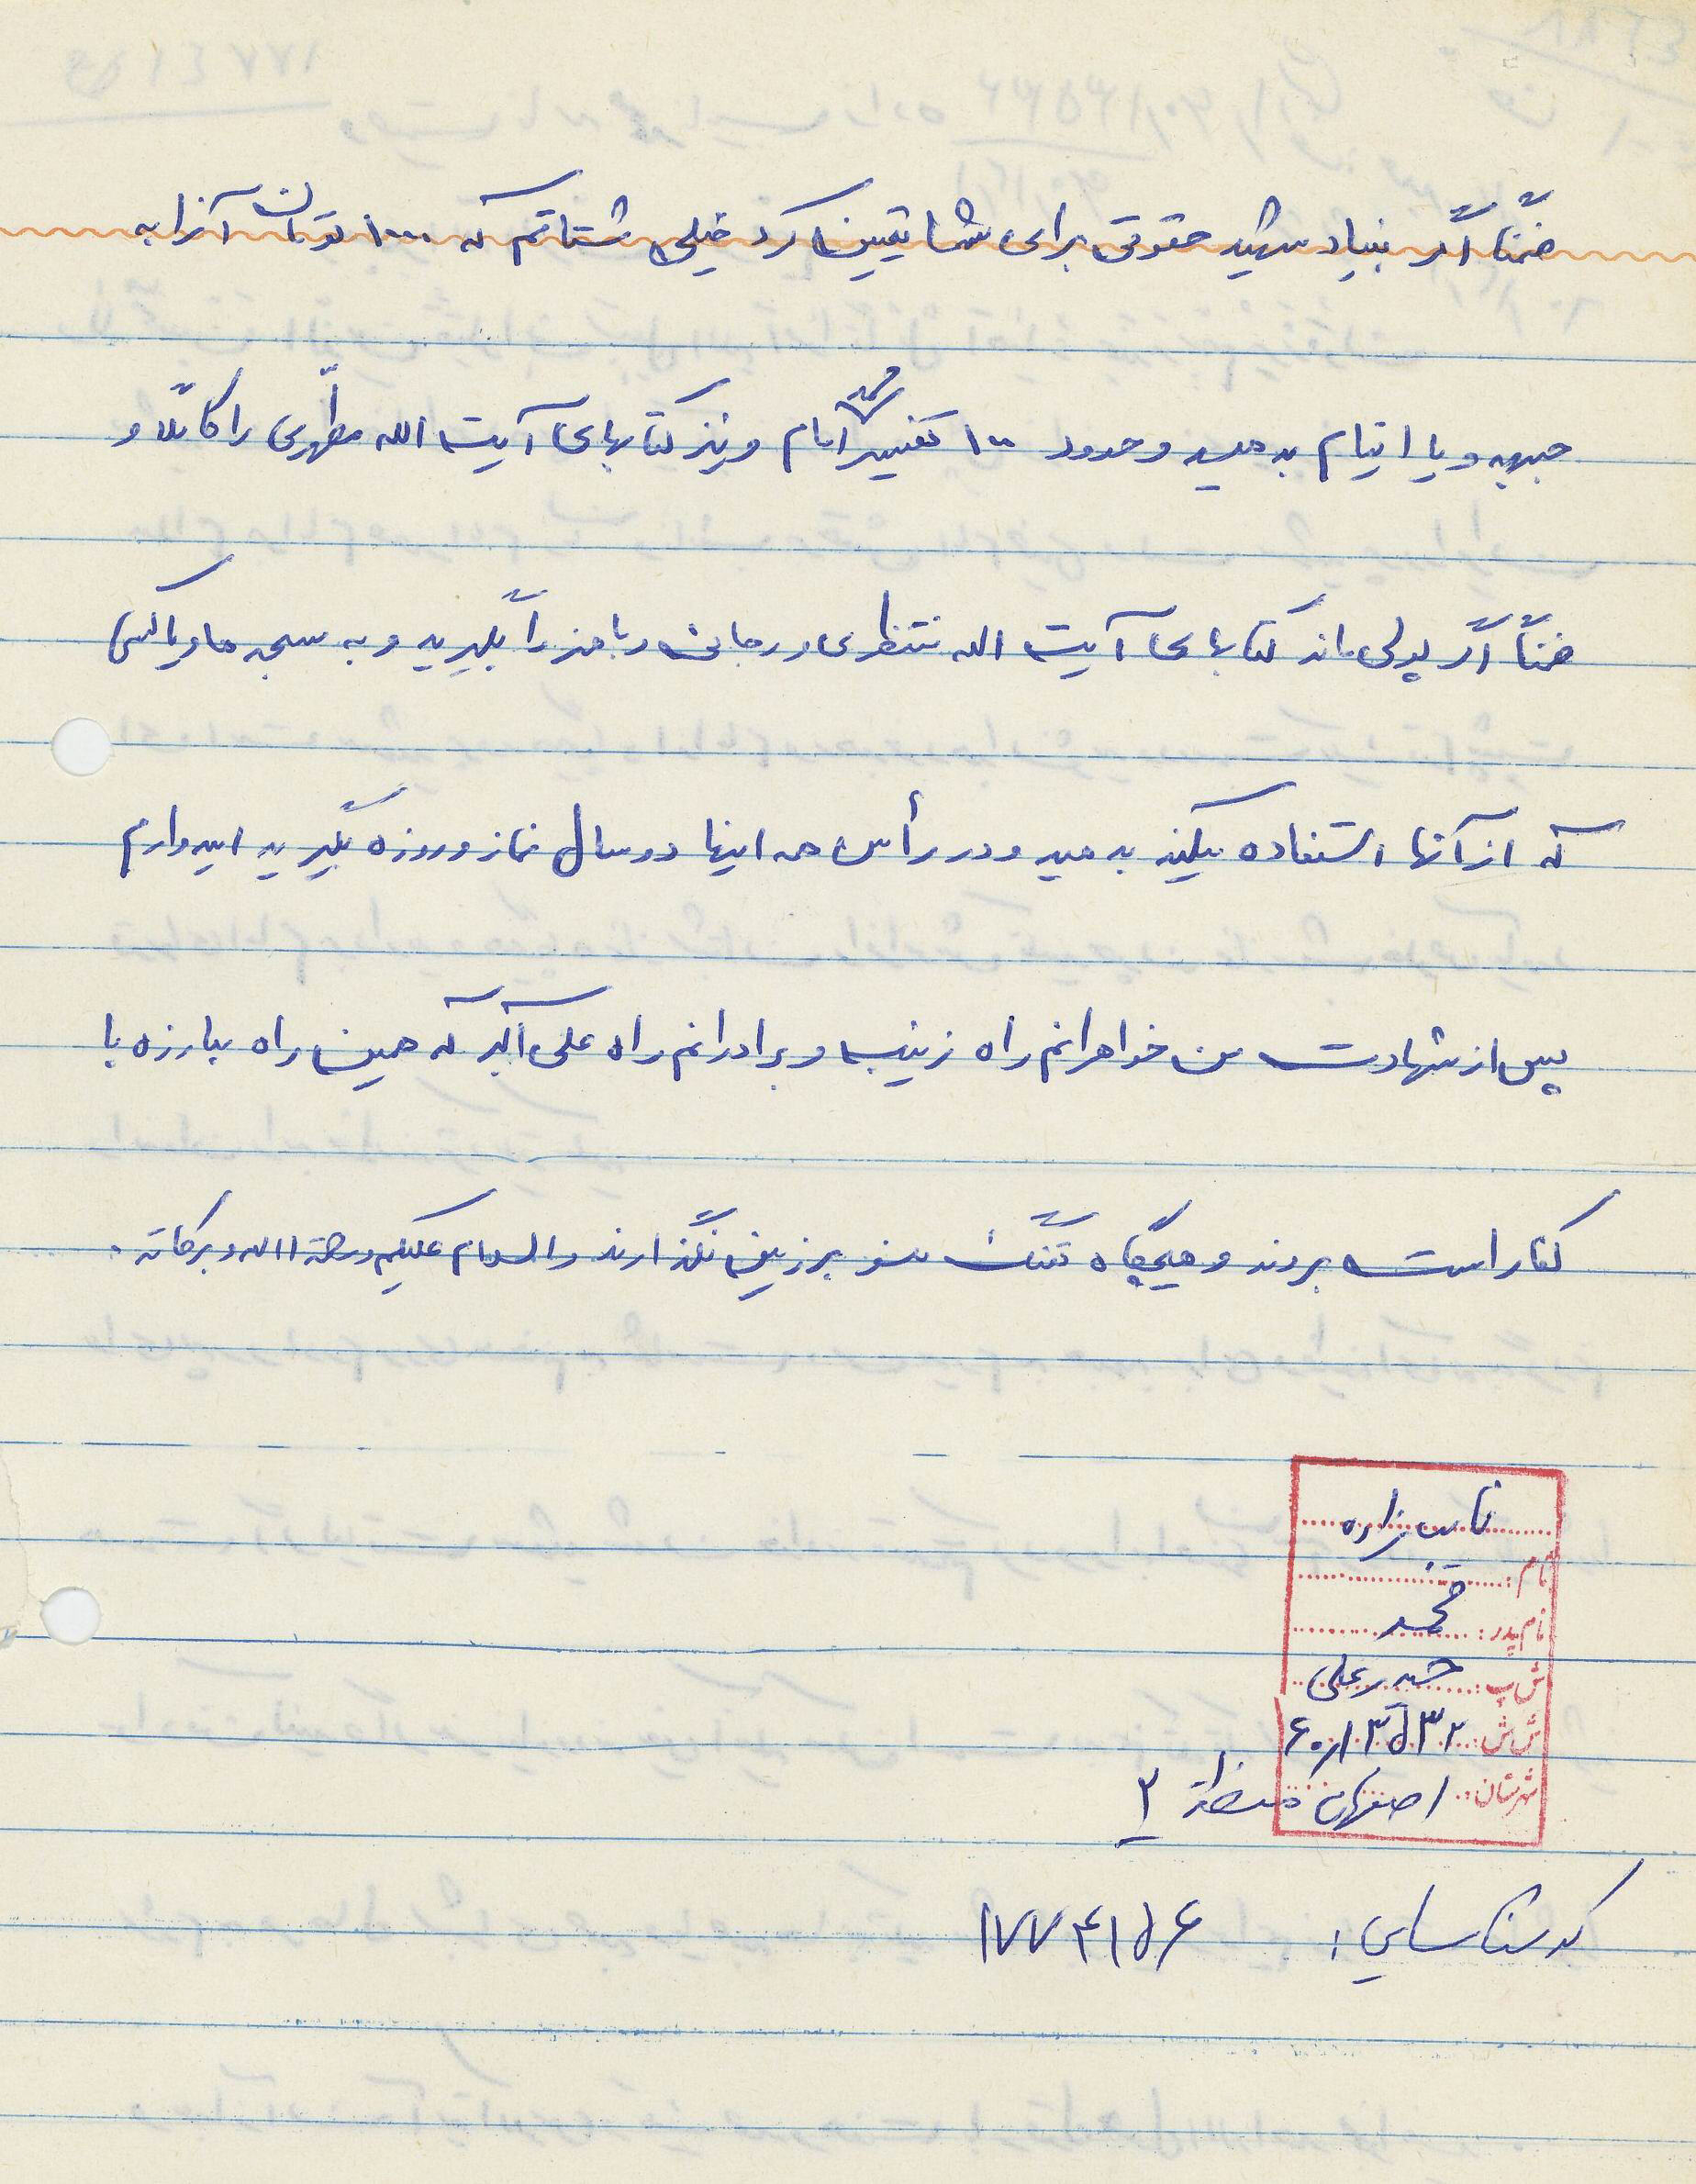 ضمناً اگر بنیاد شهید حقوقی برای شما تعیین کرد خیلی مشتاقم که ۱۰۰۰ تومان آنرا به
جبهه و یا ایتام بدهید و حدود ۱۰۰ تفسیر سوره حمد امام و نیز کتابهای آیت الله مطهری را کاملاً و
ضمناً اگر پولی ماند کتابهای آیت الله منتظری و رجائی و باهنر را بگیرید و به مسجد ما و یا کسی
که از آنها استفاده میکند بدهید و در رأس همه اینها دو سال نماز و روزه بگیرید امیدوارم
پس از شهادت من خواهرانم راه زینب و برادرانم راه علی اکبر که همین راه مبارزه با
کفار است بروند و هیچگاه تفنگ منو بر زمین نگذارند والسلام علیکم و رحمة الله و برکاته.
نایب زاده
نام:
نام پدر: محمد
ش پ: حیدرعلی
ش ش: ۶۰٫۱۳۵۳۲
شهرستان: اصفهان منطقه ۲
کد شناسایی: ۱۷۷۴۱۵۶